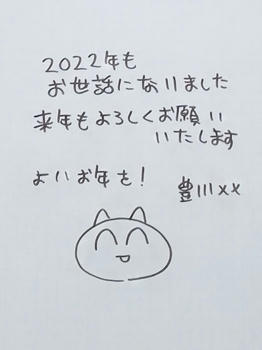 2022年も
お世話になりました
来年もよろしくお願い
いたします
よいお年を!
豊川××